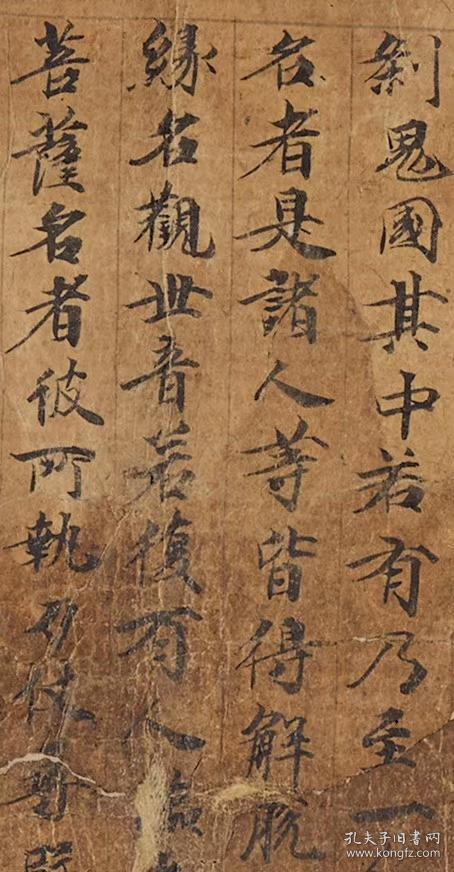 刹鬼國其中若有乃至一
名者是諸人等皆得解脫
緣名觀世音若復有人臨
菩薩名者彼所執刀杖尋段
孔夫子旧书网
www.kongfz.com